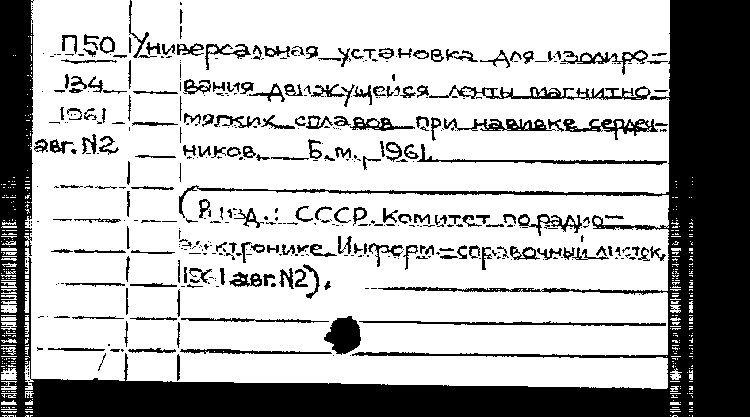 П50 Универсальная установка для изолиро-
134 вания движущейся ленты магнитно-
1961 мягких сплавов при навивке сердеч-
авг. N2 ников. Б.м., 1961.
(В изд.: СССР. Комитет по радио-
электронике. Информ.-справочный листок,
1961 авг. N2).